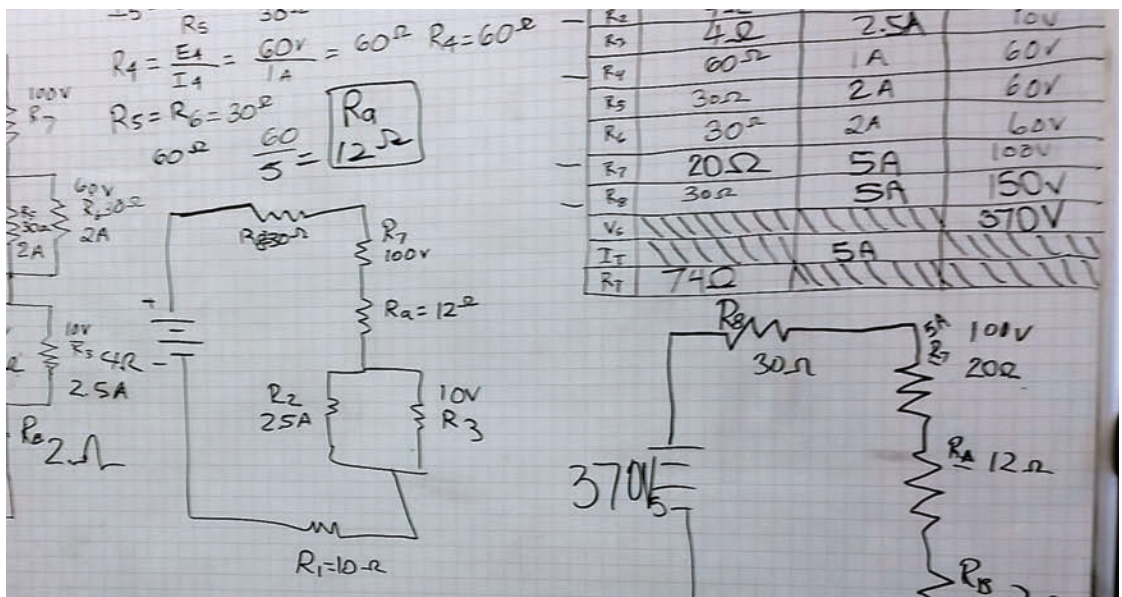 R5 30Ω
R4 = E4/I4 = 60V/1A = 60Ω R4=60Ω
R5 = R6 = 30Ω
60Ω 60/5 = Ra 12Ω
100V
R7
60V
R6 30Ω
2A
30Ω
2A
10V
R3 4Ω
2.5A
2Ω
+
-
30Ω
R7
100V
Ra = 12Ω
R2
25A
10V
R3
R1=10Ω
R2 10V
R3 4Ω 2.5A 10V
R4 60Ω 1A 60V
R5 30Ω 2A 60V
R6 30Ω 2A 60V
R7 20Ω 5A 100V
R8 30Ω 5A 150V
Vs 370V
IT 5A
RT 74Ω
R8
30Ω
5A 100V
R7 20Ω
RA 12Ω
370V
RB